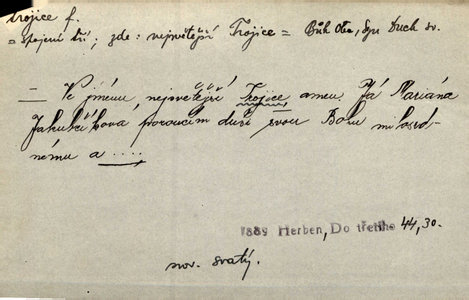 trojice f.
= spojení tří; zde: nejsvětější Trojice = Bůh Otec, Syn Duch sv.
— Ve jménu nejsvětější Trojice amen. Já Mariána
Jakubčíkova poroučím duši svou Bohu milosrd-
nému a ....
1889 Herben, Do třetího 44, 30.
srov. svatý.